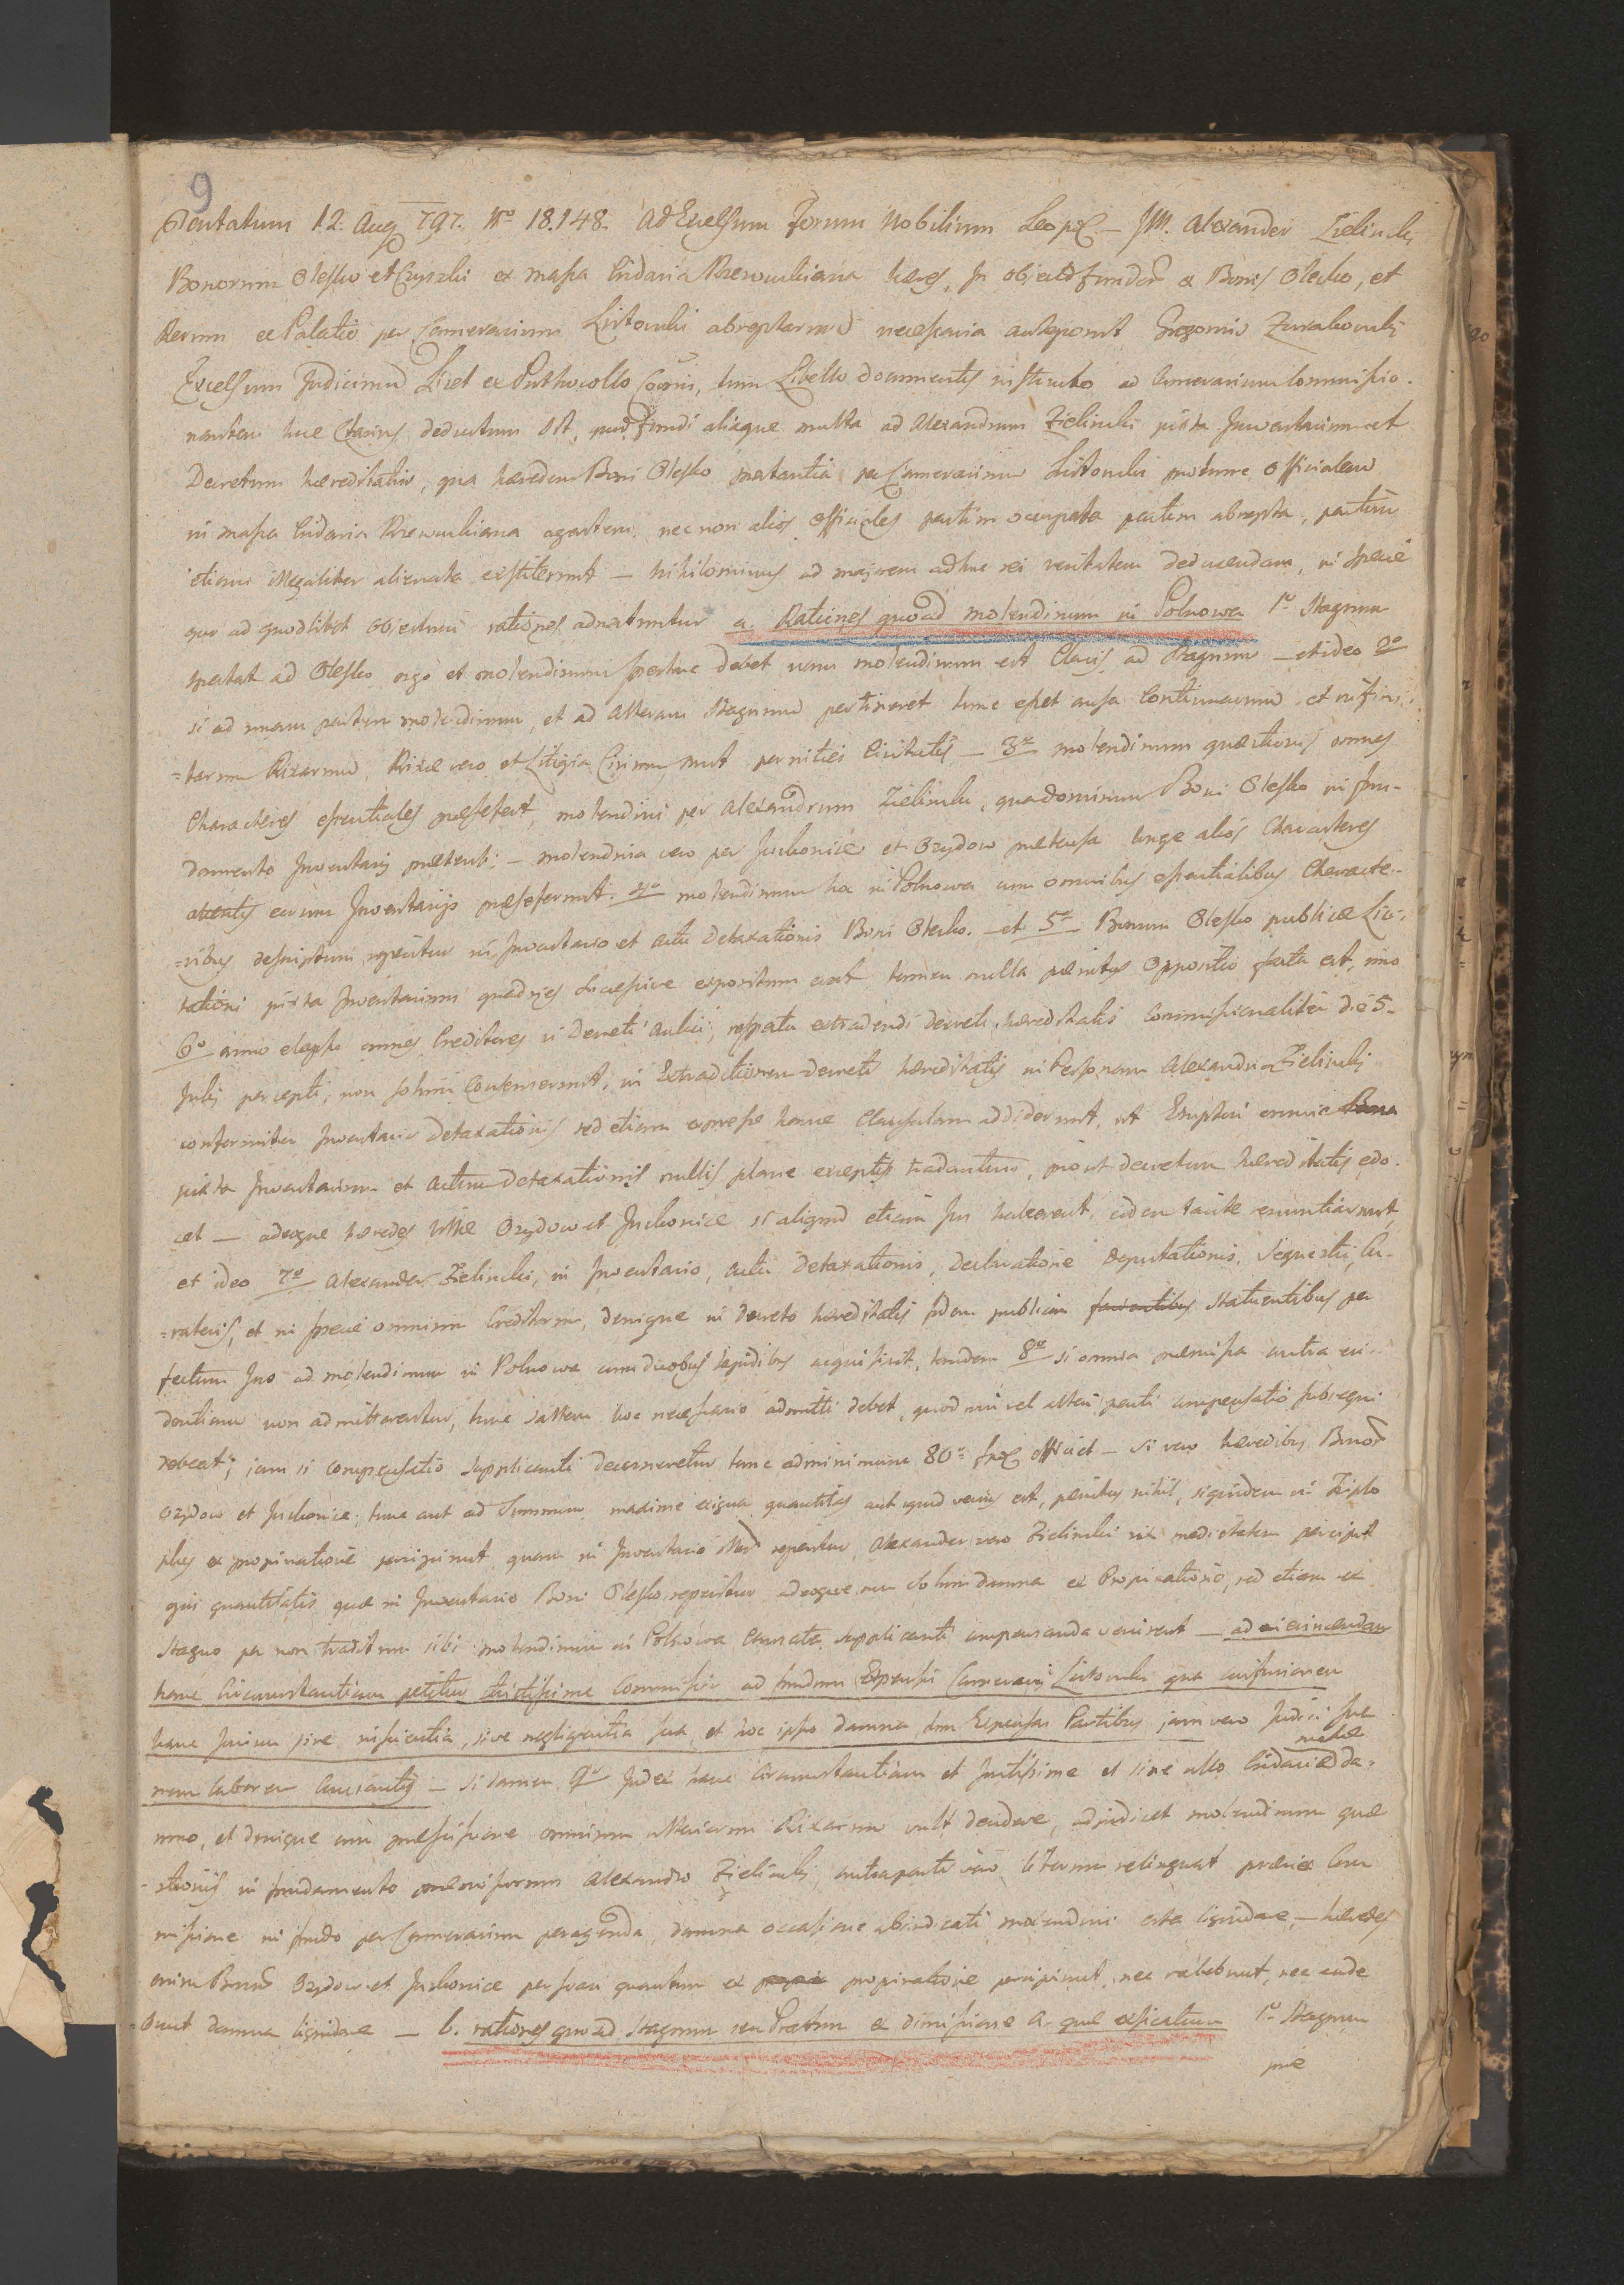 9
12. Aug 797. No 18.148. Ad Excelsum Forum Nobilium Leop. — M. Alexander Zielinski
Bonorum Olesko et ex massa Cridaria Rzewuskiana haeres, in fundor ex Bonis Olesko, et
Rerum ex Palatio per Camerarium Listowski abreptarum necessaria anteponit Gregorio Zurakowski
Excelsum Judicium Licet ex Prothocollo Coram, tum Libello documentis instructo ad Camerarium Commissio-
nantem luce Clarius deductum est, quod fundi aliaque multa ad Alexandrum Zielinski juxta Inventarium et
Decretum haereditatis, qua haeredem Boni Olesko spectantia per Camerarium Listowski pro tunc Officialem
in massa Cridaria Rzewuskiana agentem, nec non alios Officiales partim occupata partim abrepta, partim
etiam illegaliter alienata exstiterunt — nihilominus ad majorem adhuc rei veritatem deducendam, in specie
quo ad quodlibet objectum rationes adnectuntur a. Rationes quoad molendinum in Polnowa 1o Stagnum
spectat ad Olesko ergo et molendinum spectare debet nam molendinum est Clavis ad Stagnum — et ideo 2o
si ad unam partem molendinum, et ad alteram Stagnum pertineret tunc esset causa Continuarum et infini-
=tarum Rixarum, Rixae vero et Litigia Civium sunt pernities Civitatis — 3o molendinum quaestionis omnes
Characteres essentiales praesefert, molendini per Alexandrum Zielinski, qua dominum Boni Olesko in fun-
damento Inventarij praetensi — molendina vero per Juskowice et Ozydow praetensa longe alios Characteres
attentis eorum Inventarijs praeseferunt. 4o molendinum hoc in Polnowa cum omnibus essentialibus Characte-
=ribus descriptum reperitur in Inventario et actu Detaxationis Boni Olesko. — et 5o Bonum Olesko publicae Lici-
tationi juxta Inventarium quadries successive expositum erat tamen nulla penitus Oppositio facta est, imo
6o anno elapso omnes Creditores in Decreti aulici, respectu extradendi Decreti haereditatis Commissionaliter die 5.
Julij percepti, non solum Consenserunt, in Extraditionem Decreti haereditatis in Personam Alexandri Zielinski
conformiter Inventario Detaxationis sed etiam expresse hanc Clausulam addiderunt, ut Emptori omnia Bona
juxta Inventarium et actum Detaxationis nullis plane exceptis tradantur, prout decretum haereditatis edo-
cet — adeoque haeredes Villae Ozydow et Juskowice si aliquod etiam Jus haberent, eidem tacite renuntiarunt,
et ideo 7o Alexander Zielinski, in Inventario, actu Detaxationis, Declaratione Deputationis, Sequestri, Cu-
=ratoris, et in specie omnium Creditorum, denique in Decreto haereditatis fidem publicam facientibus Statuentibus per
fectum Jus ad molendinum in Polnowa cum duobus lapidibus acquisivit, tandem 8o si omnia praemissa contra evi-
dentiam non admitterentur, tunc saltem hoc necessario admitti debet, quod uni vel alteri parti compensatio subsequi
debeat; jam si compensatio Supplicanti decerneretur tunc ad minimum 80. efficiet — si vero haeredibus Bonor
Ozydow et Juskowice, tunc aut ad Summum maxime exigua quantitas aut quod verius est, penitus nihil, siquidem in Triplo
plus ex propinatione percipiunt quam in Inventario reperitur, Alexander vero Zielinski vix medietatem percipit
ejus quantitatis quae in Inventario Boni Olesko reperitur adeoque non solum damna ex Propinatione, sed etiam ex
Stagno per non traditum sibi molendinum in Polnowa Causata Supplicanti compensanda venirent — ad evincendam
hanc Circumstantiam petitur Commissio ad fundum Expensis Camerarij Listowski qua confusionem
hanc Jurium sive inscientia, sive negligentia sua, et hoc ipso damna tum Expensas Partibus jam vero Judicij sum
massae
mum laborem Causantis — si tamen 9o Judex hanc Circumstantiam et Justissime et sine ullo Cridariae da-
mno, et denique cum praescissione omnium ulteriorum Rixarum vult decidere, adjudicet molendinum quae
=stionis in fundamento praemissorum Alexandro Zielinski contraparti vero liberum relinquat praevia Com
missione in fundo per Camerarium peragenda, damna occasione abjudicati molendini erta liquidare, — haeredes
enim Bonor Ozydow et Juskowice perfecte quantum ex propi propinatione percipiunt, nec valebunt, nec aude
bunt damna liquidare — b. rationes quoad Stagnum seu Pratum ex dimissione aquae exsiccatum 1o Stagnum
prae